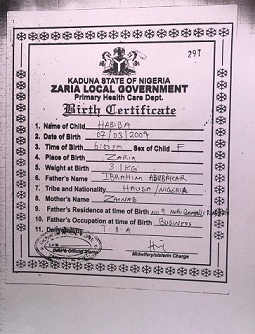 297
KADUNA STATE OF NIGERIA
ZARIA LOCAL GOVERNMENT
Primary Health Care Dept.
Birth Certificate
1. Name of Child HABIBA
2. Date of Birth 07/03/2009
3. Time of Birth 6:00pm Sex of Child F
4. Place of Birth ZARIA
5. Weight at Birth 3.1KG
6. Father's Name IBRAHIM ABUBAKAR
7. Tribe and Nationality HAUSA/NIGERIA
8. Mother's Name ZAINAB
9. Father's Residence at time of Birth NO 9
10. Father's Occupation at time of Birth BUSINESS
11.
Midwifery/sister in Charge